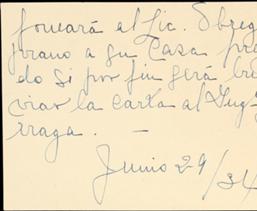 foneará al Lic. Obreg
prano a su Casa pre
do si por fin será bre
viar la carta al Ing.
rraga. —
Junio 29/34